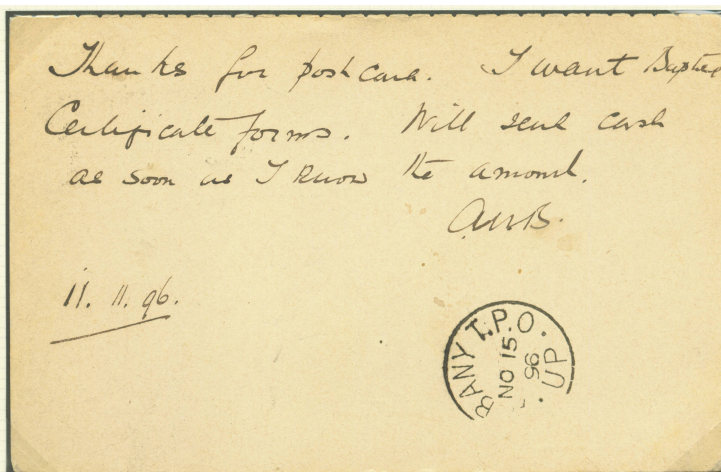 Thanks for postcard. I want
Certificate forms. Will send cash
as soon as I know the amount.
11. 11. 96.
BANY T.P.O. UP
NO 15
96